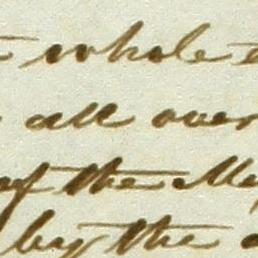 whole
all over
of the
by the